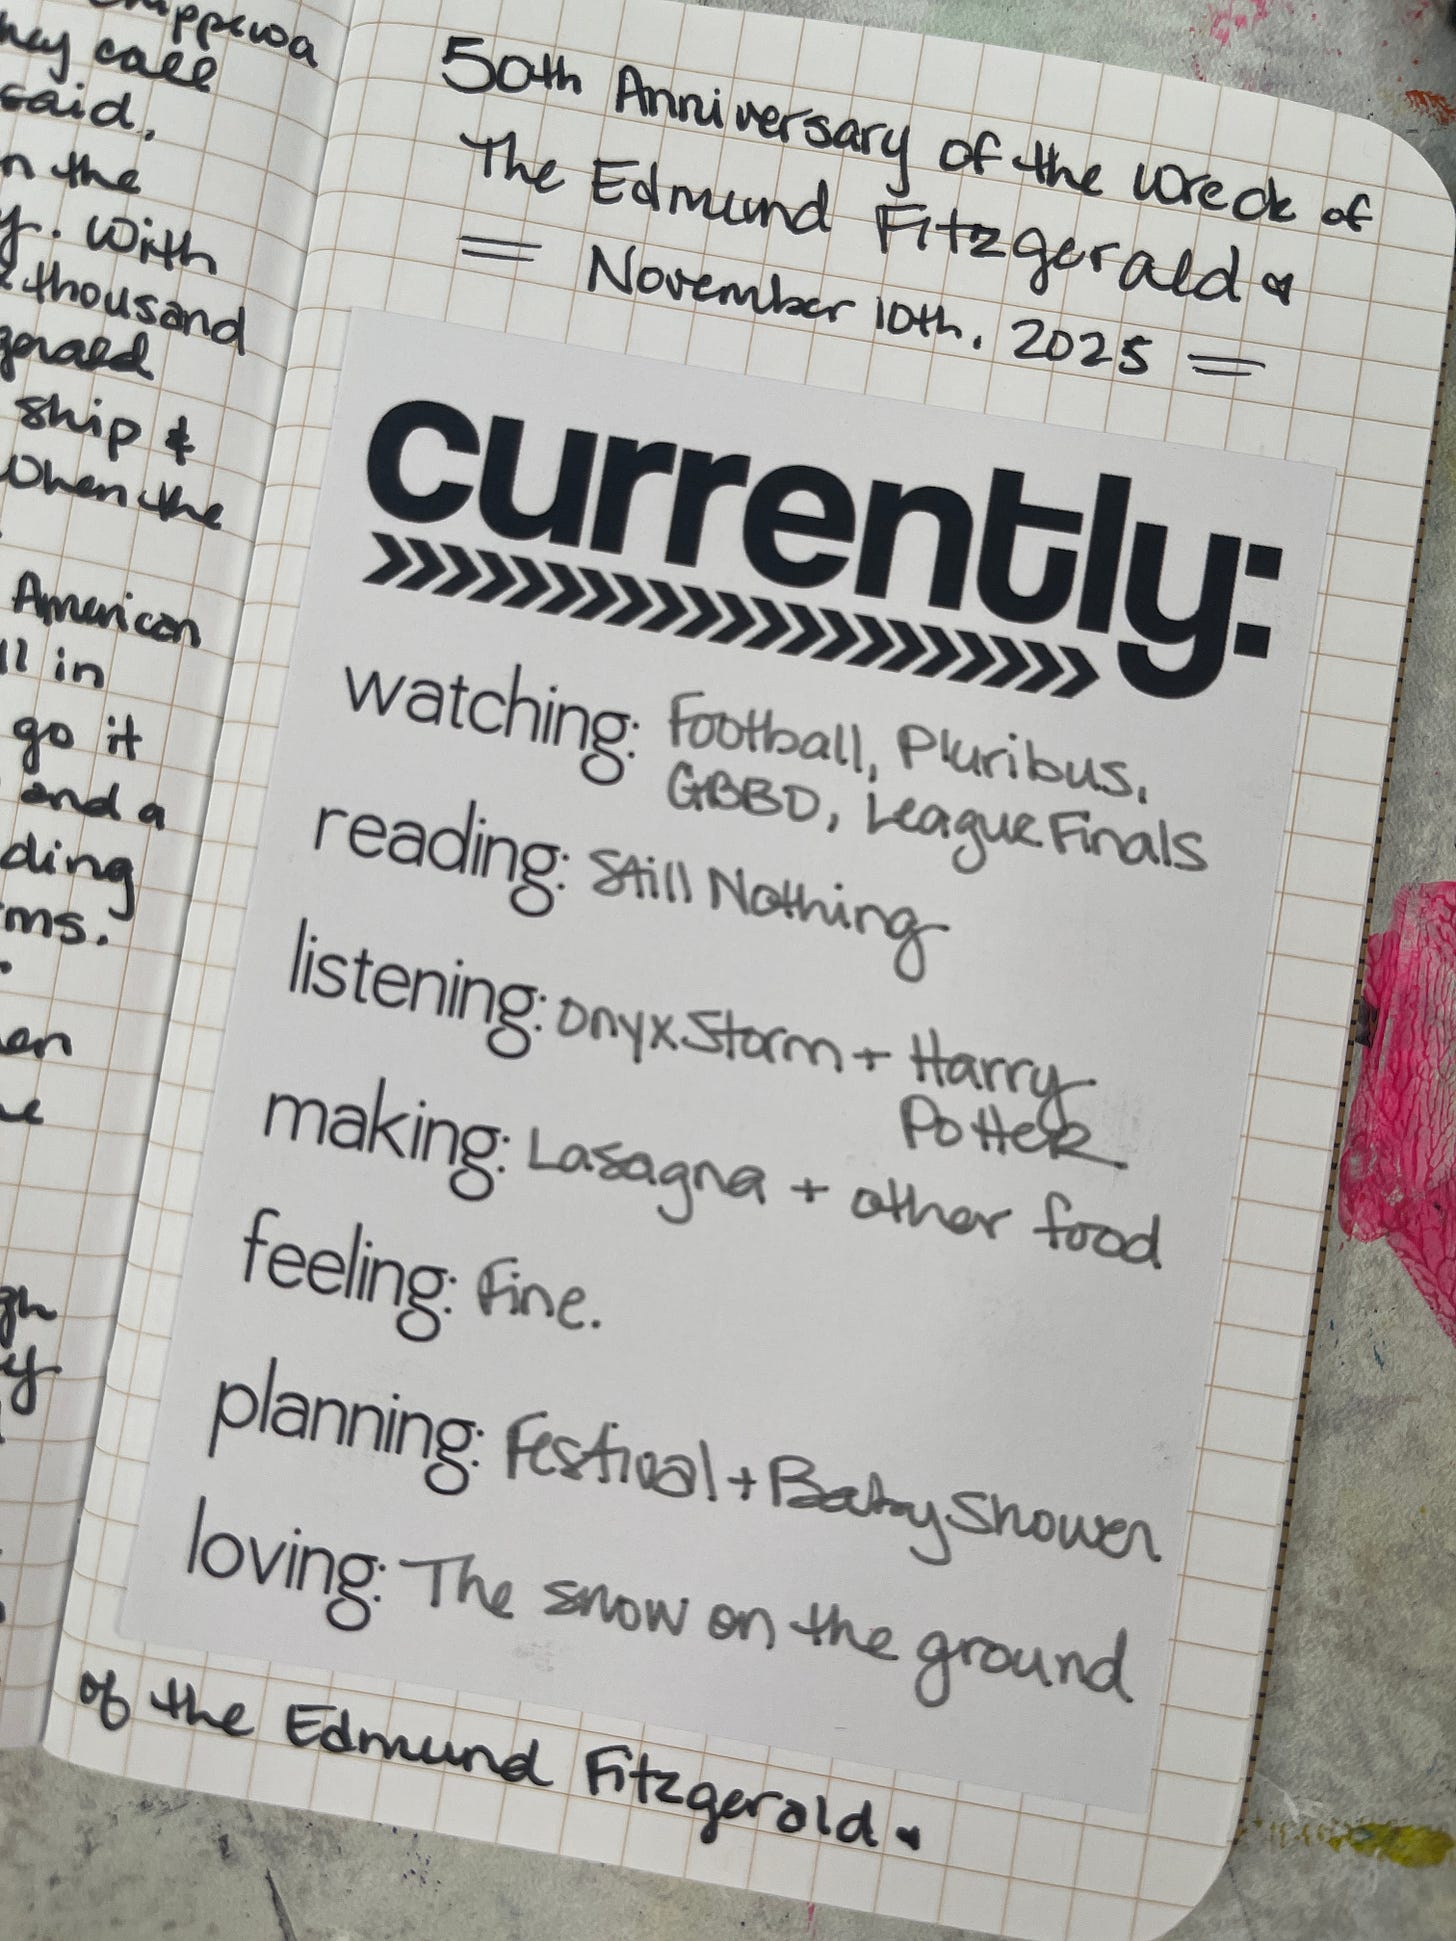 chippewa
they call
said.
n the
y. With
thousand
gerald
ship &
When the
American
ll in
go it
and a
ding
ms.
en
gh
y
50th Anniversary of the Wreck of
The Edmund Fitzgerald
= November 10th, 2025 =
currently:
>>>>>>>>>>>>>>>>>>>>>>>>>>>
watching: Football, Pluribus,
GBBO, League Finals
reading: Still Nothing
listening: Onyx Storm + Harry
Potter
making: Lasagna + other food
feeling: Fine.
planning: Festival + Baby Shower
loving: The snow on the ground
of the Edmund Fitzgerald